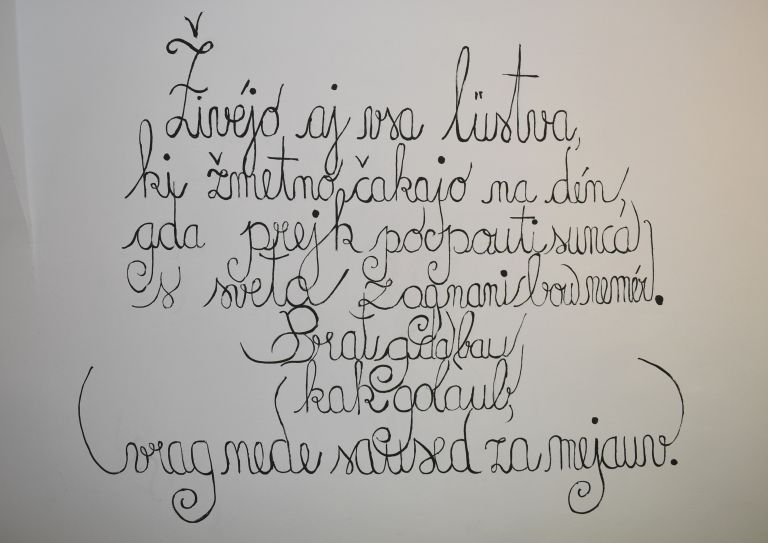 Živéjo aj vsa lüstva,
ki žmetno čakajo na dén,
gda prejk pocpouti sunca
s sveta zagnani bou nemér.
Brat, gda bau
kak golaub,
vrag nede saused za mejauv.